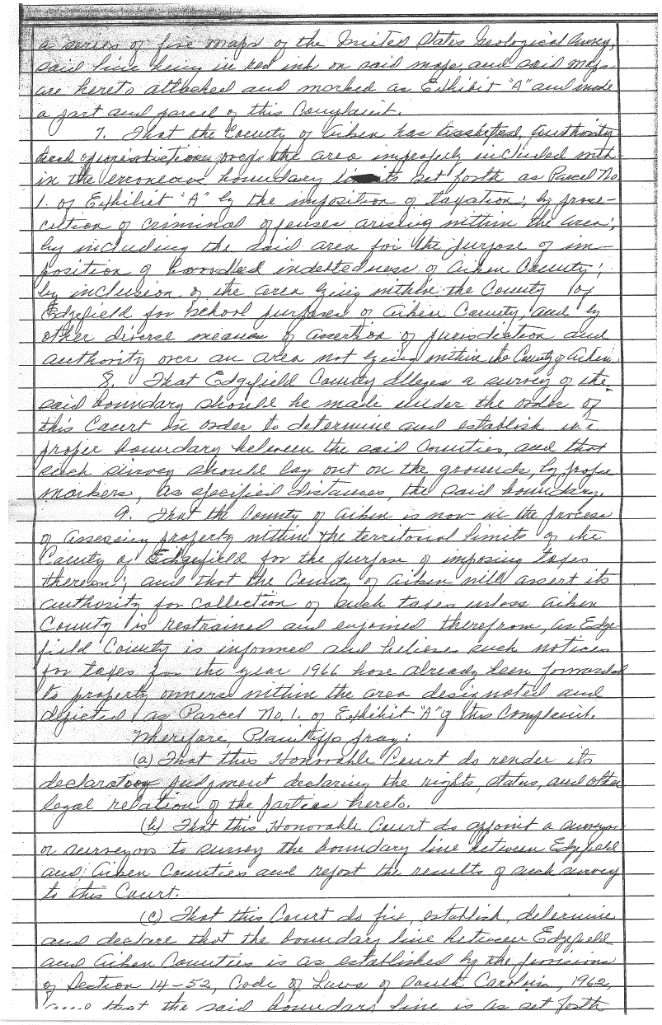 a series of five maps of the United States Geological Survey,
said line being in red ink on said maps and said maps
are hereto attached and marked as Exhibit "A" and made
a part and parcel of this Complaint.
7. That the County of Aiken has asserted, authority
and jurisdiction over the area improperly included with-
in the erroneous boundary limits set forth as Parcel No.
1. of Exhibit "A" by the imposition of taxation; by prose-
cution of criminal offenses arising within the area;
by including the said area for the purpose of im-
position of bonded indebtedness of Aiken County;
by inclusion of the area lying within the County of
Edgefield for school purposes of Aiken County, and by
other diverse means of assertion of jurisdiction and
authority over an area not lying within the County of Aiken.
8. That Edgefield County alleges a survey of the
said boundary should be made under the order of
this Court in order to determine and establish the
proper boundary between the said Counties, and that
such survey should lay out on the grounds, by proper
markers, as specified distances, the said boundary.
9. That the County of Aiken is now in the process
of assessing property within the territorial limits of the
County of Edgefield for the purpose of imposing taxes
thereon; and that the County of Aiken will assert its
authority for collection of such taxes unless Aiken
County is restrained and enjoined therefrom, as Edge-
field County is informed and believes such notices
for taxes for the year 1966 have already been forwarded
to property owners within the area designated and
depicted as Parcel No. 1. of Exhibit "A" of this Complaint.
Wherefore, Plaintiffs pray:
(a) That this Honorable Court do render its
declaratory judgment declaring the rights, status, and other
legal relation of the parties hereto.
(b) That this Honorable Court do appoint a surveyor
or surveyors to survey the boundary line between Edgefield
and Aiken Counties and report the results of such survey
to this Court.
(c) That this Court do fix, establish, determine
and declare that the boundary line between Edgefield
and Aiken Counties is as established by the provisions
of Section 14-52, Code of Laws of South Carolina, 1962,
that the said boundary line is as set forth